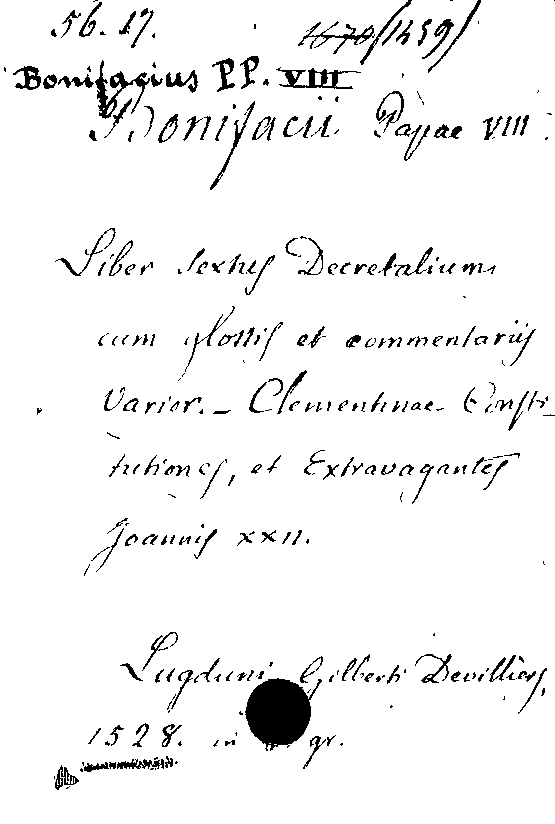 56. 17.
1670 (1459)
Bonifacius PP. VIII
Bonifacii Papae VIII.
Liber sextus Decretalium
cum glossis et commentariis
varior. – Clementinae Consti-
tutiones, et Extravagantes
Joannis XXII.
Lugduni Gilberti Devilliers,
1528. in gr.